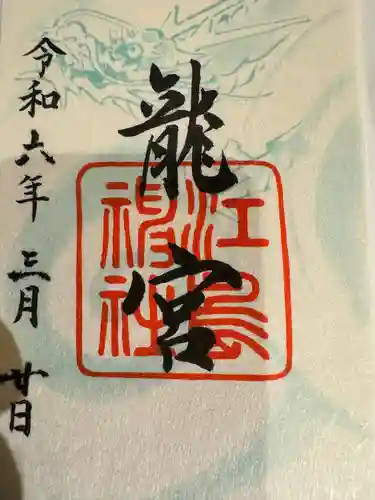 龍宮
江島神社
令和六年 三月 廿日